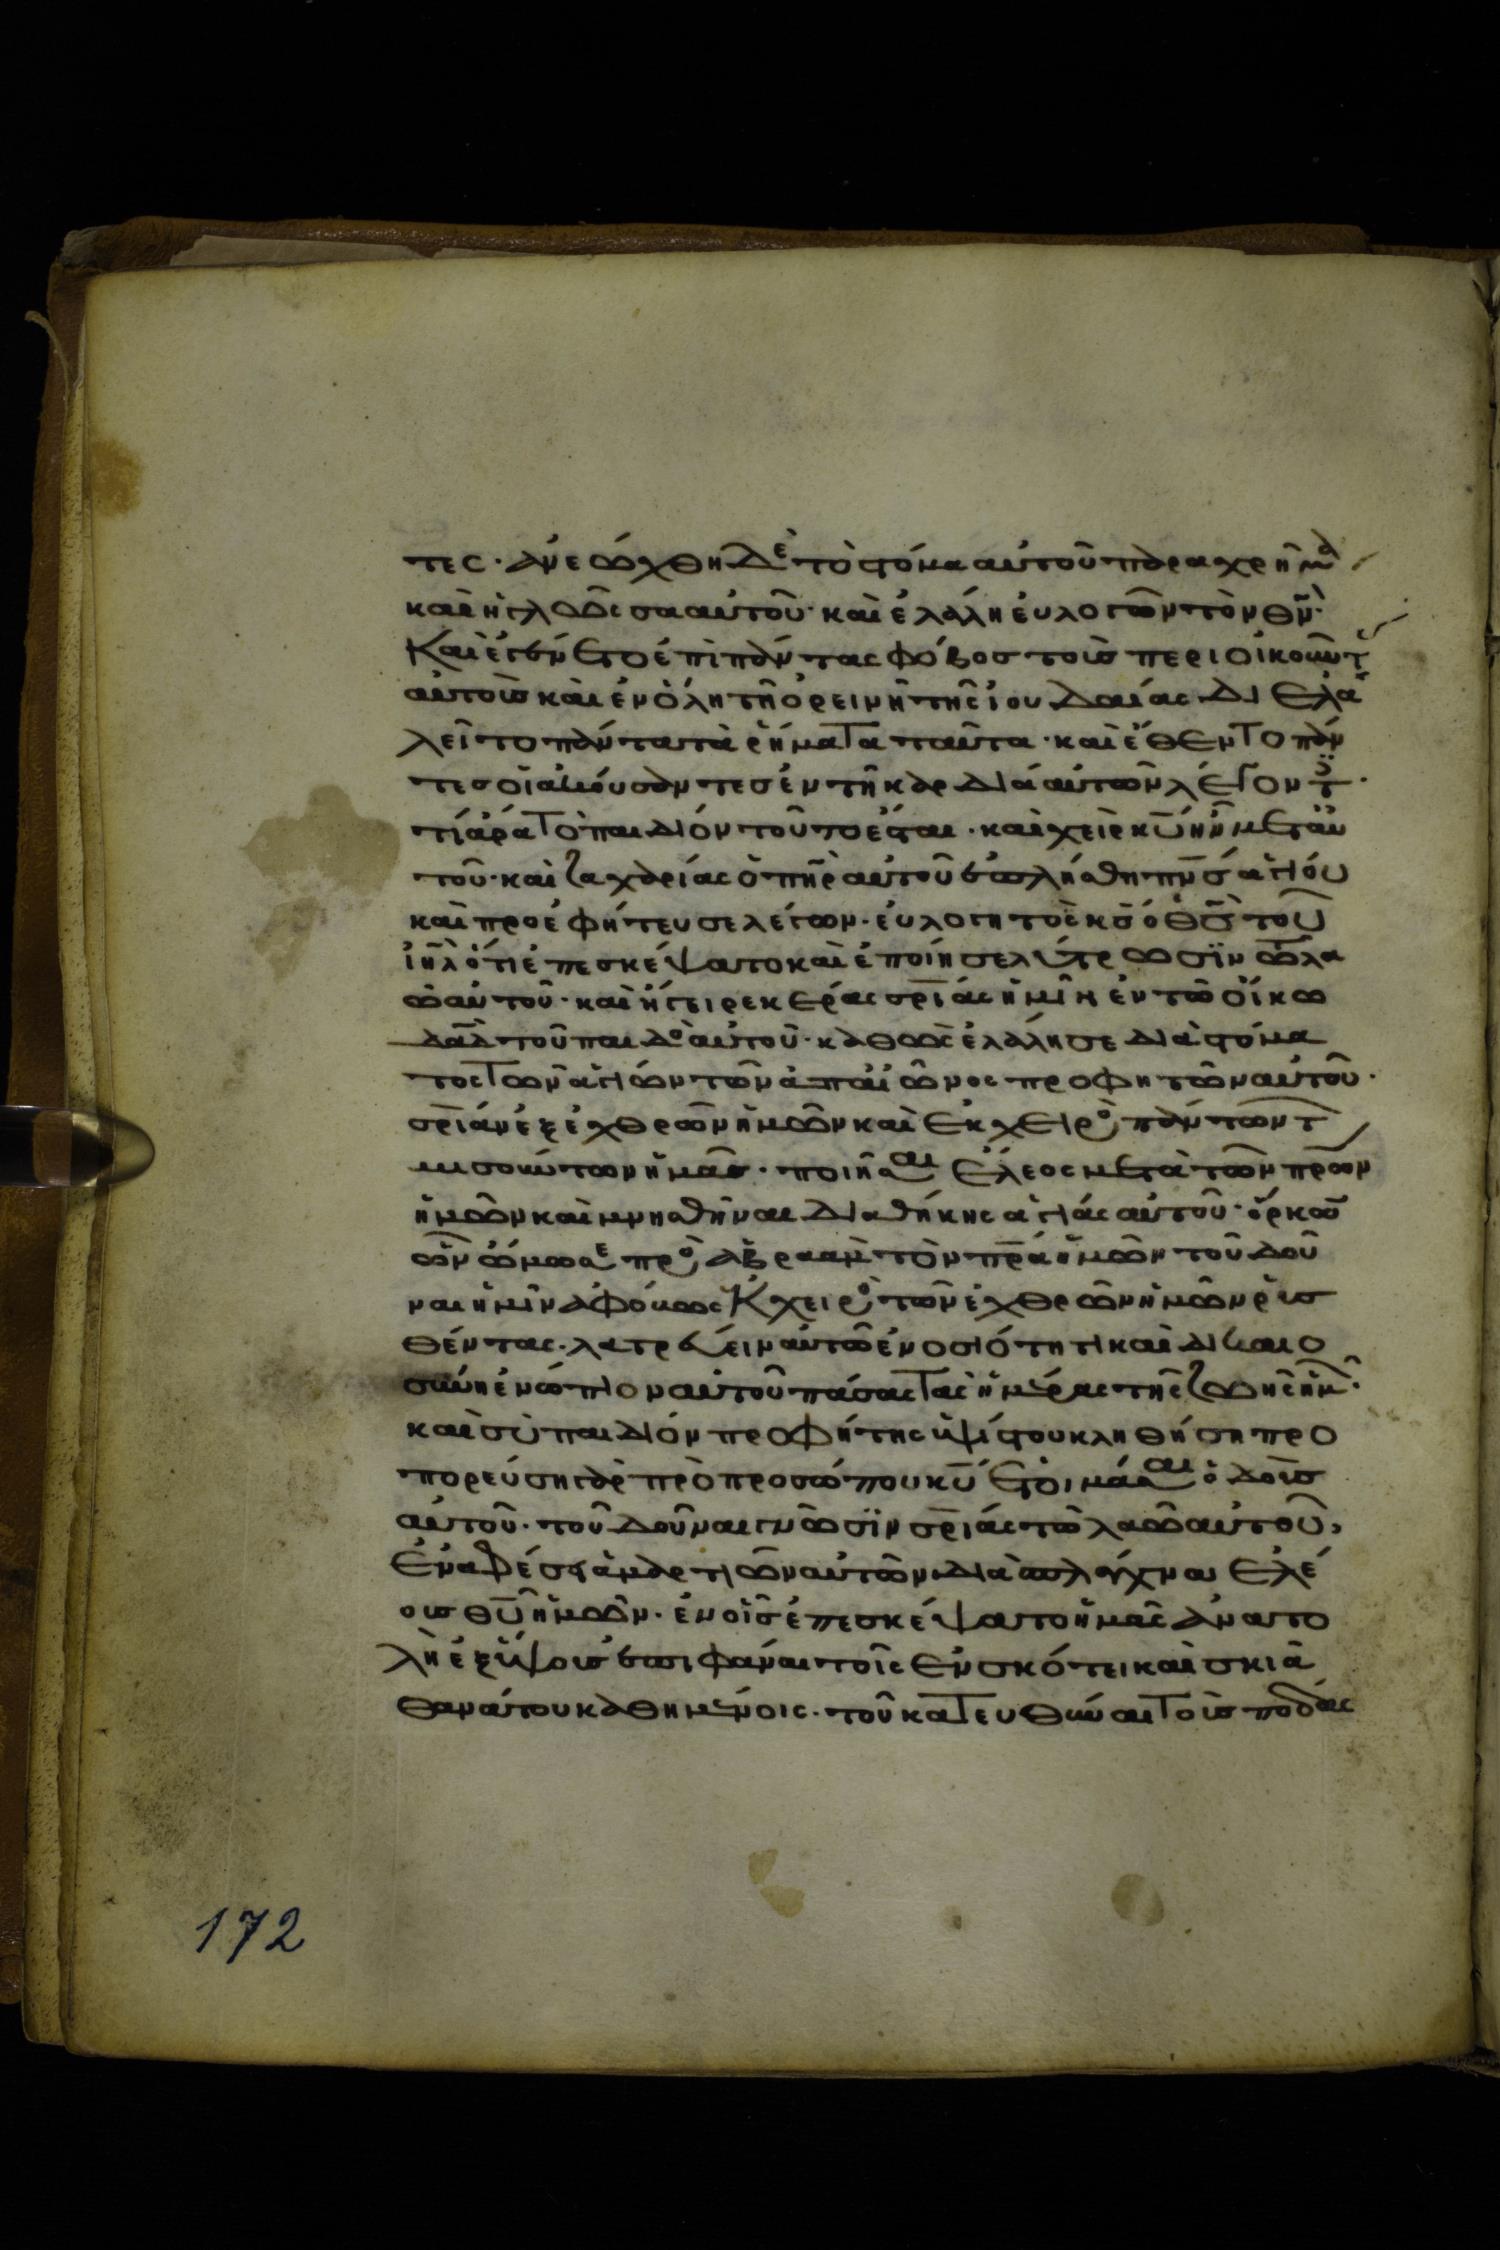 τες· ἀνεώχθη δὲ τὸ στόμα αὐτοῦ παραχρῆμα
καὶ ἡ γλῶσσα αὐτοῦ· καὶ ἐλάλη εὐλογῶν τὸν θν̄·
Καὶ ἐγένετο ἐπὶ πάντας φόβος τοὺς περιοικοῦντ
αὐτοὺς καὶ ἐν ὅλη τῆ ὀρεινῆ τῆς ἰουδαίας διελα
λεῖτο πάντα τὰ ῥήματα ταῦτα· καὶ ἔθεντο πάν
τες οἱ ἀκούσαντες ἐν τῆ καρδία αὐτῶν λέγοντ·
τί ἄρα τὸ παιδίον τοῦτο ἔσται· καὶ χεὶρ κῡ ἦν μετ αὐ
τοῦ· καὶ ζαχαρίας ὁ πηρ̄ αὐτοῦ ἐπλήσθη πνς̄ ἁγίου
καὶ προεφήτευσε λέγων· εὐλογητὸς κς̄ ὁ θς̄ τοῦ
ιηλ̄ ὅτι ἐπεσκέψατο καὶ ἐποίησε λύτρωσϊν τῶ λα
ῶ αὐτοῦ· καὶ ἤγειρε κέρας σρ̄ίας ἡμῖν ἐν τῶ οἴκω
δᾱδ τοῦ παιδὸ αὐτοῦ· καθὼς ἐλάλησε διὰ στόμα
τος τῶν ἁγίων τῶν ἀπ αἰῶνος προφητῶν αὐτοῦ·
σρ̄ίαν ἐξ ἐχθρῶν ἡμῶν καὶ ἐκ χειρὸ πάντων τ
μισούντων ἡμᾶς· ποιῆσαι ἔλεος μετὰ τῶν πρ̄ων
ἡμῶν καὶ μνησθῆναι διαθήκης ἁγίας αὐτοῦ· ὅρκον
ὃν ὤμοσε πρὸ ἀβραὰμ τὸν πρ̄α ἡμῶν τοῦ δοῦ
ναι ἡμῖν ἀφόβως ἐκ χειρὸ τῶν ἐχθρῶν ἡμῶν ῥυσ
θέντας· λατρεύειν αὐτῶ ἐν ὁσιότητι καὶ δικαιο
σύνη ἐνώπιον αὐτοῦ πάσας τὰς ἡμέρας τῆς ζωῆς ἡμ·
καὶ σὺ παιδίον προφήτης ὑψίστου κληθήση προ
πορεύση γὰρ πρὸ προσώπου κῡ ἑτοιμάσαι ὁδοὺς
αὐτοῦ· τοῦ δοῦναι γνῶσϊν σρ̄ίας τῶ λαῶ αὐτοῦ,
ἐν ἀφέσει ἁμαρτιῶν αὐτῶν διὰ σπλάγχνα ἐλέ
ους θῡ ἡμῶν· ἐν οἷς ἐπεσκέψατο ἡμᾶς ἀνατο
λὴ ἐξ ὕψους ἐπιφάναι τοῖς ἐν σκότει καὶ σκιᾶ
θανάτου καθημένοις· τοῦ κατευθύναι τοὺς πόδας
172